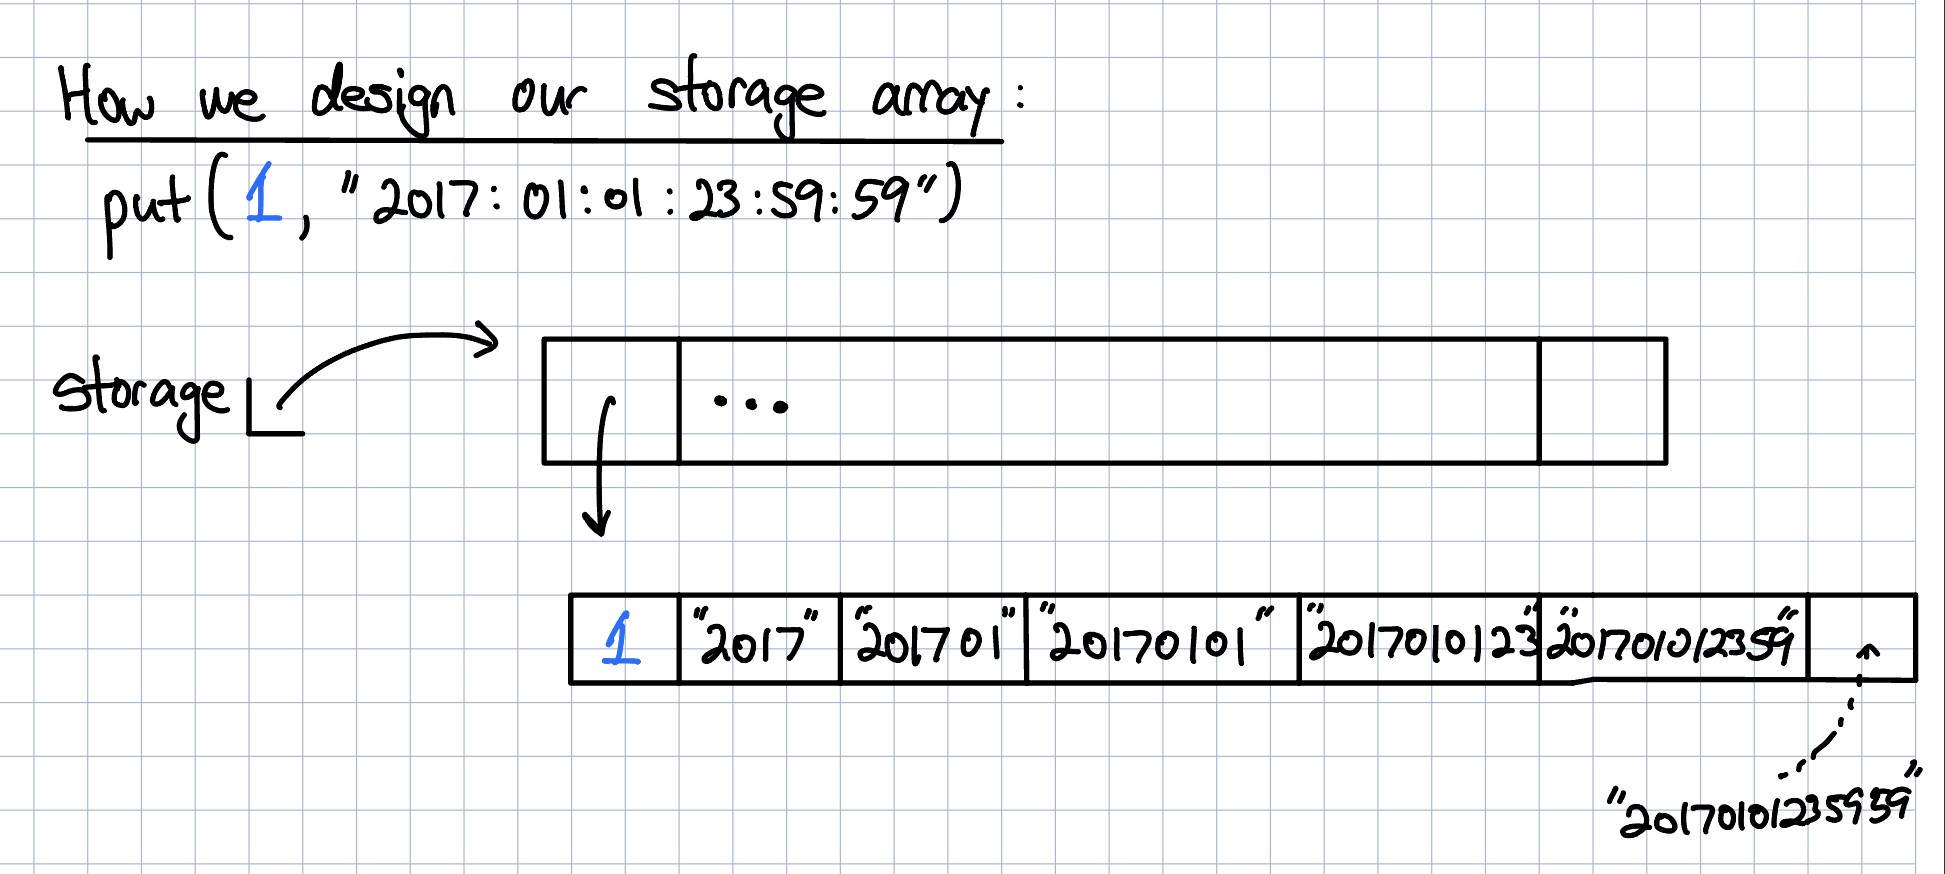 How we design our storage array:
put(1, "2017:01:01:23:59:59")
storage
...
1 "2017" "201701" "20170101" "2017010123" "201701012359"
"20170101235959"